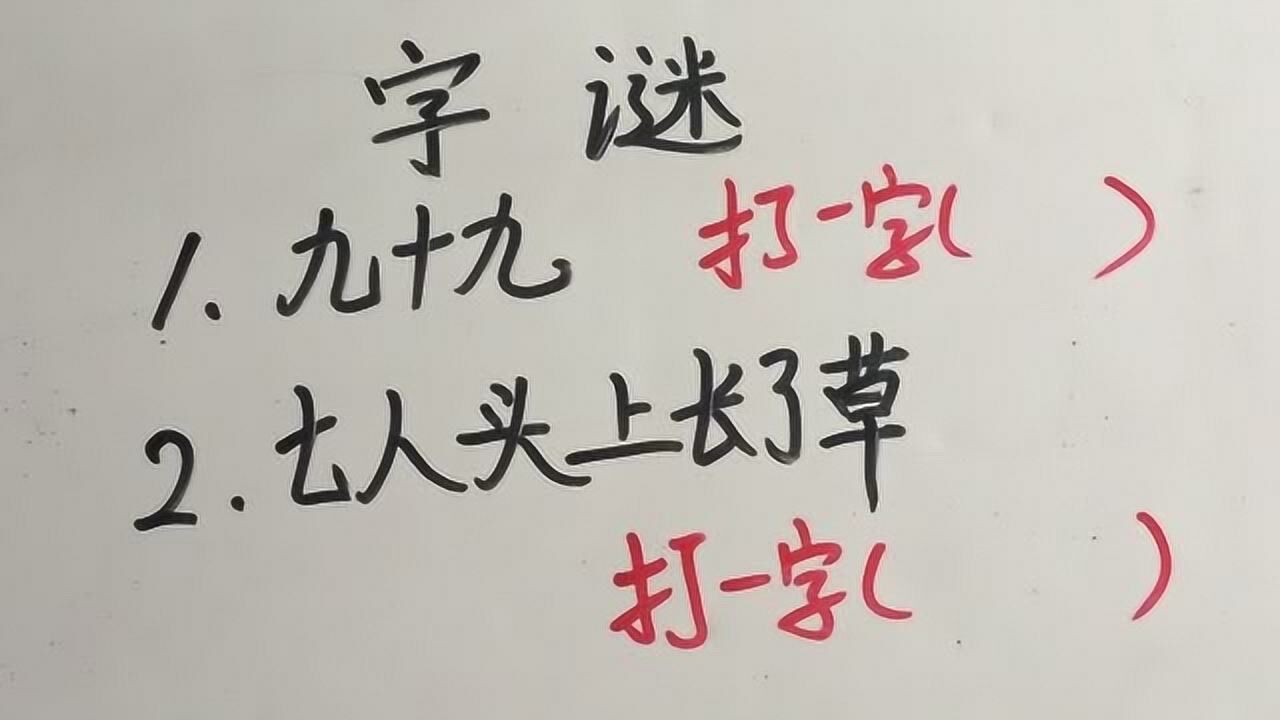 字 谜
1. 九十九 打一字( )
2. 七人头上长了草
打一字( )